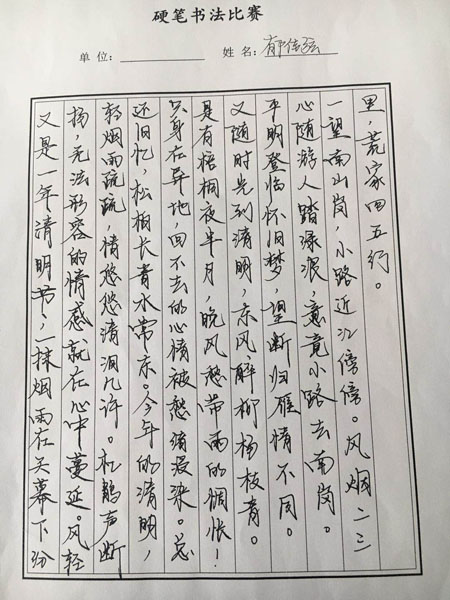 硬笔书法比赛
单位：
姓名：郁佳弦
又是一年清明节，一抹烟雨在天幕下纷
扬，无法形容的情感就在心中蔓延。风轻
轻烟雨疏疏，情悠悠清泪几许。杜鹃声断
还旧忆，松柏长青水常东。今年的清明，
只身在异地，回不去的心情被愁绪浸染。总
是有梧桐夜半月，晚风愁带雨的惆怅！
又随时光到清明，东风醉柳杨枝青。
平明登临怀旧梦，望断归雁情不同。
心随游人踏绿浪，意觅小路去南岗。
一望南山岗，小路近江傍傍。风烟二三
里，荒家四五行。